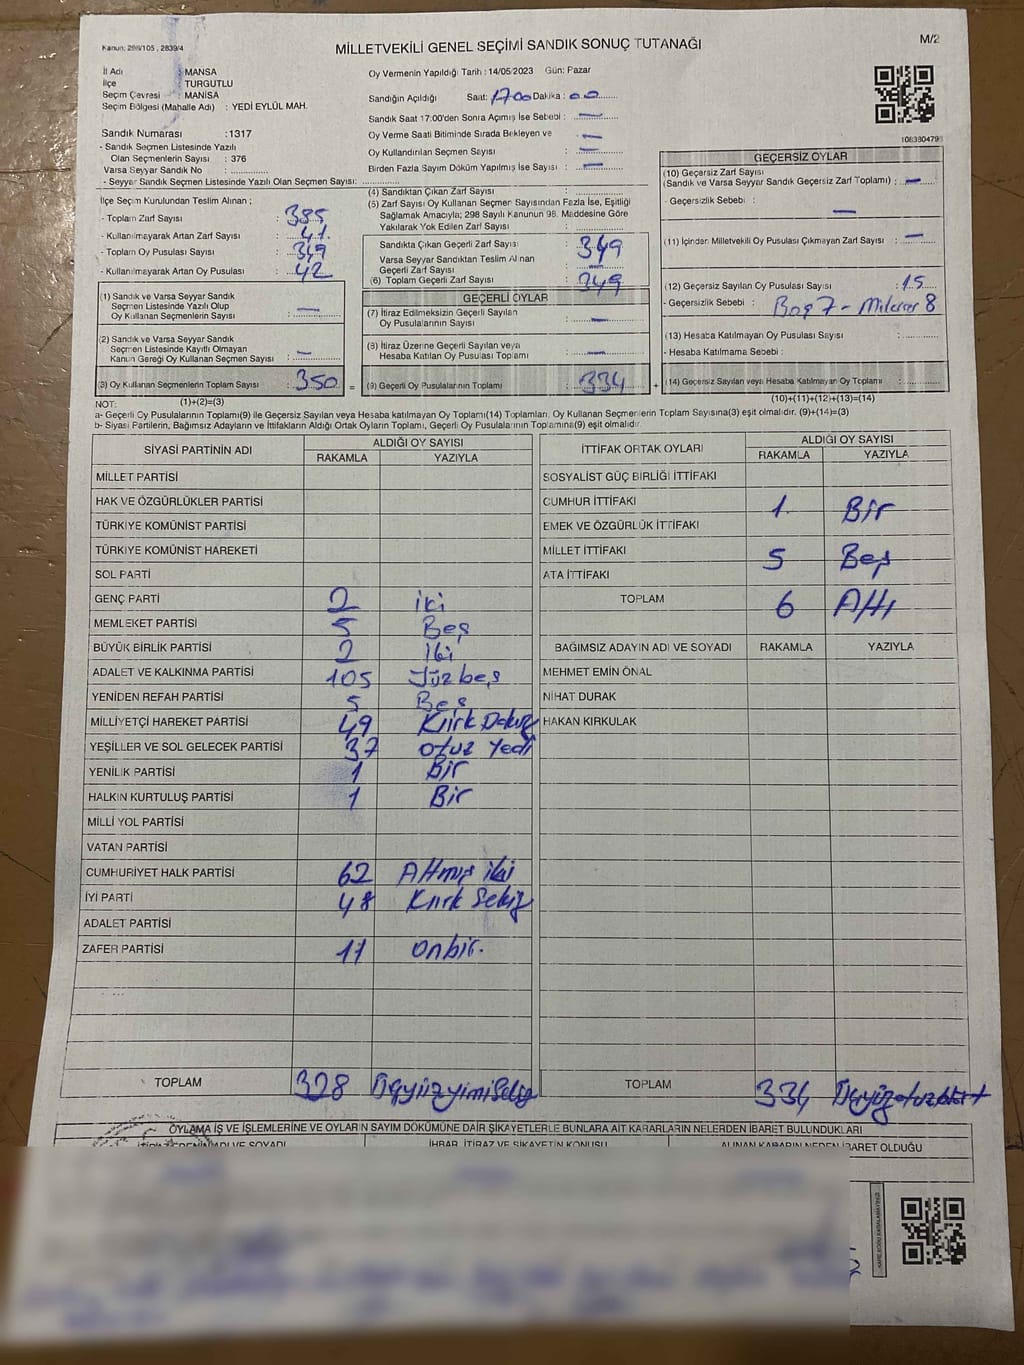 Kanun: 298/105 , 2839/4
M/2
MİLLETVEKİLİ GENEL SEÇİMİ SANDIK SONUÇ TUTANAĞI
İl Adı : MANSA
İlçe : TURGUTLU
Seçim Çevresi : MANİSA
Seçim Bölgesi (Mahalle Adı) : YEDİ EYLÜL MAH.
Sandık Numarası : 1317
- Sandık Seçmen Listesinde Yazılı
Olan Seçmenlerin Sayısı : 376
Varsa Seyyar Sandık No :
- Seyyar Sandık Seçmen Listesinde Yazılı Olan Seçmen Sayısı:
İlçe Seçim Kurulundan Teslim Alınan ;
- Toplam Zarf Sayısı : 385
- Kullanılmayarak Artan Zarf Sayısı : 41
- Toplam Oy Pusulası Sayısı : 349
- Kullanılmayarak Artan Oy Pusulası : 42
(1) Sandık ve Varsa Seyyar Sandık
Seçmen Listesinde Yazılı Olup
Oy Kullanan Seçmenlerin Sayısı : —
(2) Sandık ve Varsa Seyyar Sandık
Seçmen Listesinde Kayıtlı Olmayan
Kanun Gereği Oy Kullanan Seçmen Sayısı : —
(3) Oy Kullanan Seçmenlerin Toplam Sayısı : 350 =
Oy Vermenin Yapıldığı Tarih : 14/05/2023 Gün: Pazar
Sandığın Açıldığı Saat: 17.00 Dakika : 00
Sandık Saat 17:00'den Sonra Açılmış İse Sebebi : —
Oy Verme Saati Bitiminde Sırada Bekleyen ve : —
Oy Kullandırılan Seçmen Sayısı : —
Birden Fazla Sayım Döküm Yapılmış İse Sayısı : —
(4) Sandıktan Çıkan Zarf Sayısı :
(5) Zarf Sayısı Oy Kullanan Seçmen Sayısından Fazla İse, Eşitliği
Sağlamak Amacıyla; 298 Sayılı Kanunun 98. Maddesine Göre
Yakılarak Yok Edilen Zarf Sayısı :
Sandıkta Çıkan Geçerli Zarf Sayısı : 349
Varsa Seyyar Sandıktan Teslim Alınan
Geçerli Zarf Sayısı : —
(6) Toplam Geçerli Zarf Sayısı : 349
GEÇERLİ OYLAR
(7) İtiraz Edilmeksizin Geçerli Sayılan
Oy Pusulalarının Sayısı : —
(8) İtiraz Üzerine Geçerli Sayılan veya
Hesaba Katılan Oy Pusulası Toplamı : —
(9) Geçerli Oy Pusulalarının Toplamı : 334 +
108380479
GEÇERSİZ OYLAR
(10) Geçersiz Zarf Sayısı
(Sandık ve Varsa Seyyar Sandık Geçersiz Zarf Toplamı) : —
- Geçersizlik Sebebi : —
(11) İçinden Milletvekili Oy Pusulası Çıkmayan Zarf Sayısı : —
(12) Geçersiz Sayılan Oy Pusulası Sayısı : 15
- Geçersizlik Sebebi : Boş 7 -
(13) Hesaba Katılmayan Oy Pusulası Sayısı :
- Hesaba Katılmama Sebebi :
(14) Geçersiz Sayılan veya Hesaba Katılmayan Oy Toplamı :
NOT: (1)+(2)=(3)
(10)+(11)+(12)+(13)=(14)
a- Geçerli Oy Pusulalarının Toplamı(9) ile Geçersiz Sayılan veya Hesaba katılmayan Oy Toplamı(14) Toplamları, Oy Kullanan Seçmenlerin Toplam Sayısına(3) eşit olmalıdır. (9)+(14)=(3)
b- Siyasi Partilerin, Bağımsız Adayların ve İttifakların Aldığı Ortak Oyların Toplamı, Geçerli Oy Pusulalarının Toplamına(9) eşit olmalıdır.
SİYASİ PARTİNİN ADI ALDIĞI OY SAYISI
RAKAMLA YAZIYLA
MİLLET PARTİSİ
HAK VE ÖZGÜRLÜKLER PARTİSİ
TÜRKİYE KOMÜNİST PARTİSİ
TÜRKİYE KOMÜNİST HAREKETİ
SOL PARTİ
GENÇ PARTİ 2 iki
MEMLEKET PARTİSİ 5 Beş
BÜYÜK BİRLİK PARTİSİ 2 iki
ADALET VE KALKINMA PARTİSİ 105 Yüzbeş
YENİDEN REFAH PARTİSİ 5 Beş
MİLLİYETÇİ HAREKET PARTİSİ 49 Kırk Dokuz
YEŞİLLER VE SOL GELECEK PARTİSİ 37 otuz Yedi
YENİLİK PARTİSİ 1 Bir
HALKIN KURTULUŞ PARTİSİ 1 Bir
MİLLİ YOL PARTİSİ
VATAN PARTİSİ
CUMHURİYET HALK PARTİSİ 62 Altmış iki
İYİ PARTİ 48 Kırk Sekiz
ADALET PARTİSİ
ZAFER PARTİSİ 11 onbir.
TOPLAM 328 Üçyüzyirmi Sekiz
İTTİFAK ORTAK OYLARI ALDIĞI OY SAYISI
RAKAMLA YAZIYLA
SOSYALİST GÜÇ BİRLİĞİ İTTİFAKI
CUMHUR İTTİFAKI 1 Bir
EMEK VE ÖZGÜRLÜK İTTİFAKI
MİLLET İTTİFAKI 5 Beş
ATA İTTİFAKI
TOPLAM 6 Altı
BAĞIMSIZ ADAYIN ADI VE SOYADI RAKAMLA YAZIYLA
MEHMET EMİN ÖNAL
NİHAT DURAK
HAKAN KIRKULAK
TOPLAM 334 Üçyüzotuzdört
OYLAMA İŞ VE İŞLEMLERİNE VE OYLARIN SAYIM DÖKÜMÜNE DAİR ŞİKAYETLERLE BUNLARA AİT KARARLARIN NELERDEN İBARET BULUNDUKLARI
İHBAR, İTİRAZ VE ŞİKAYETİN KONUSU ALINAN KARARIN NEDEN İBARET OLDUĞU